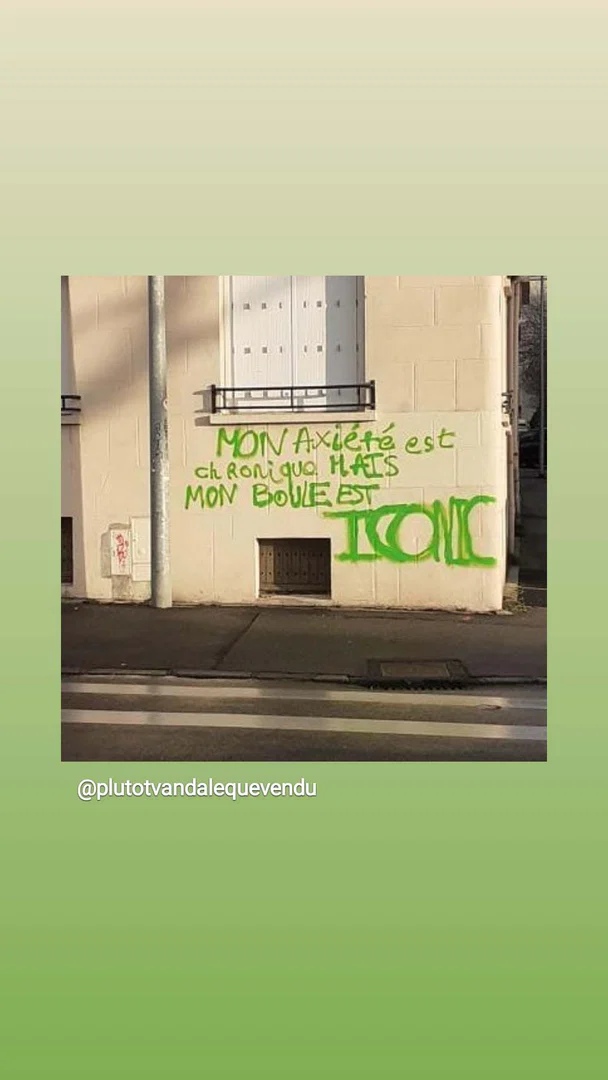 MON AXiété est
chRonique MAIS
MON BOULE EST
ICONIC
@plutotvandalequevendu